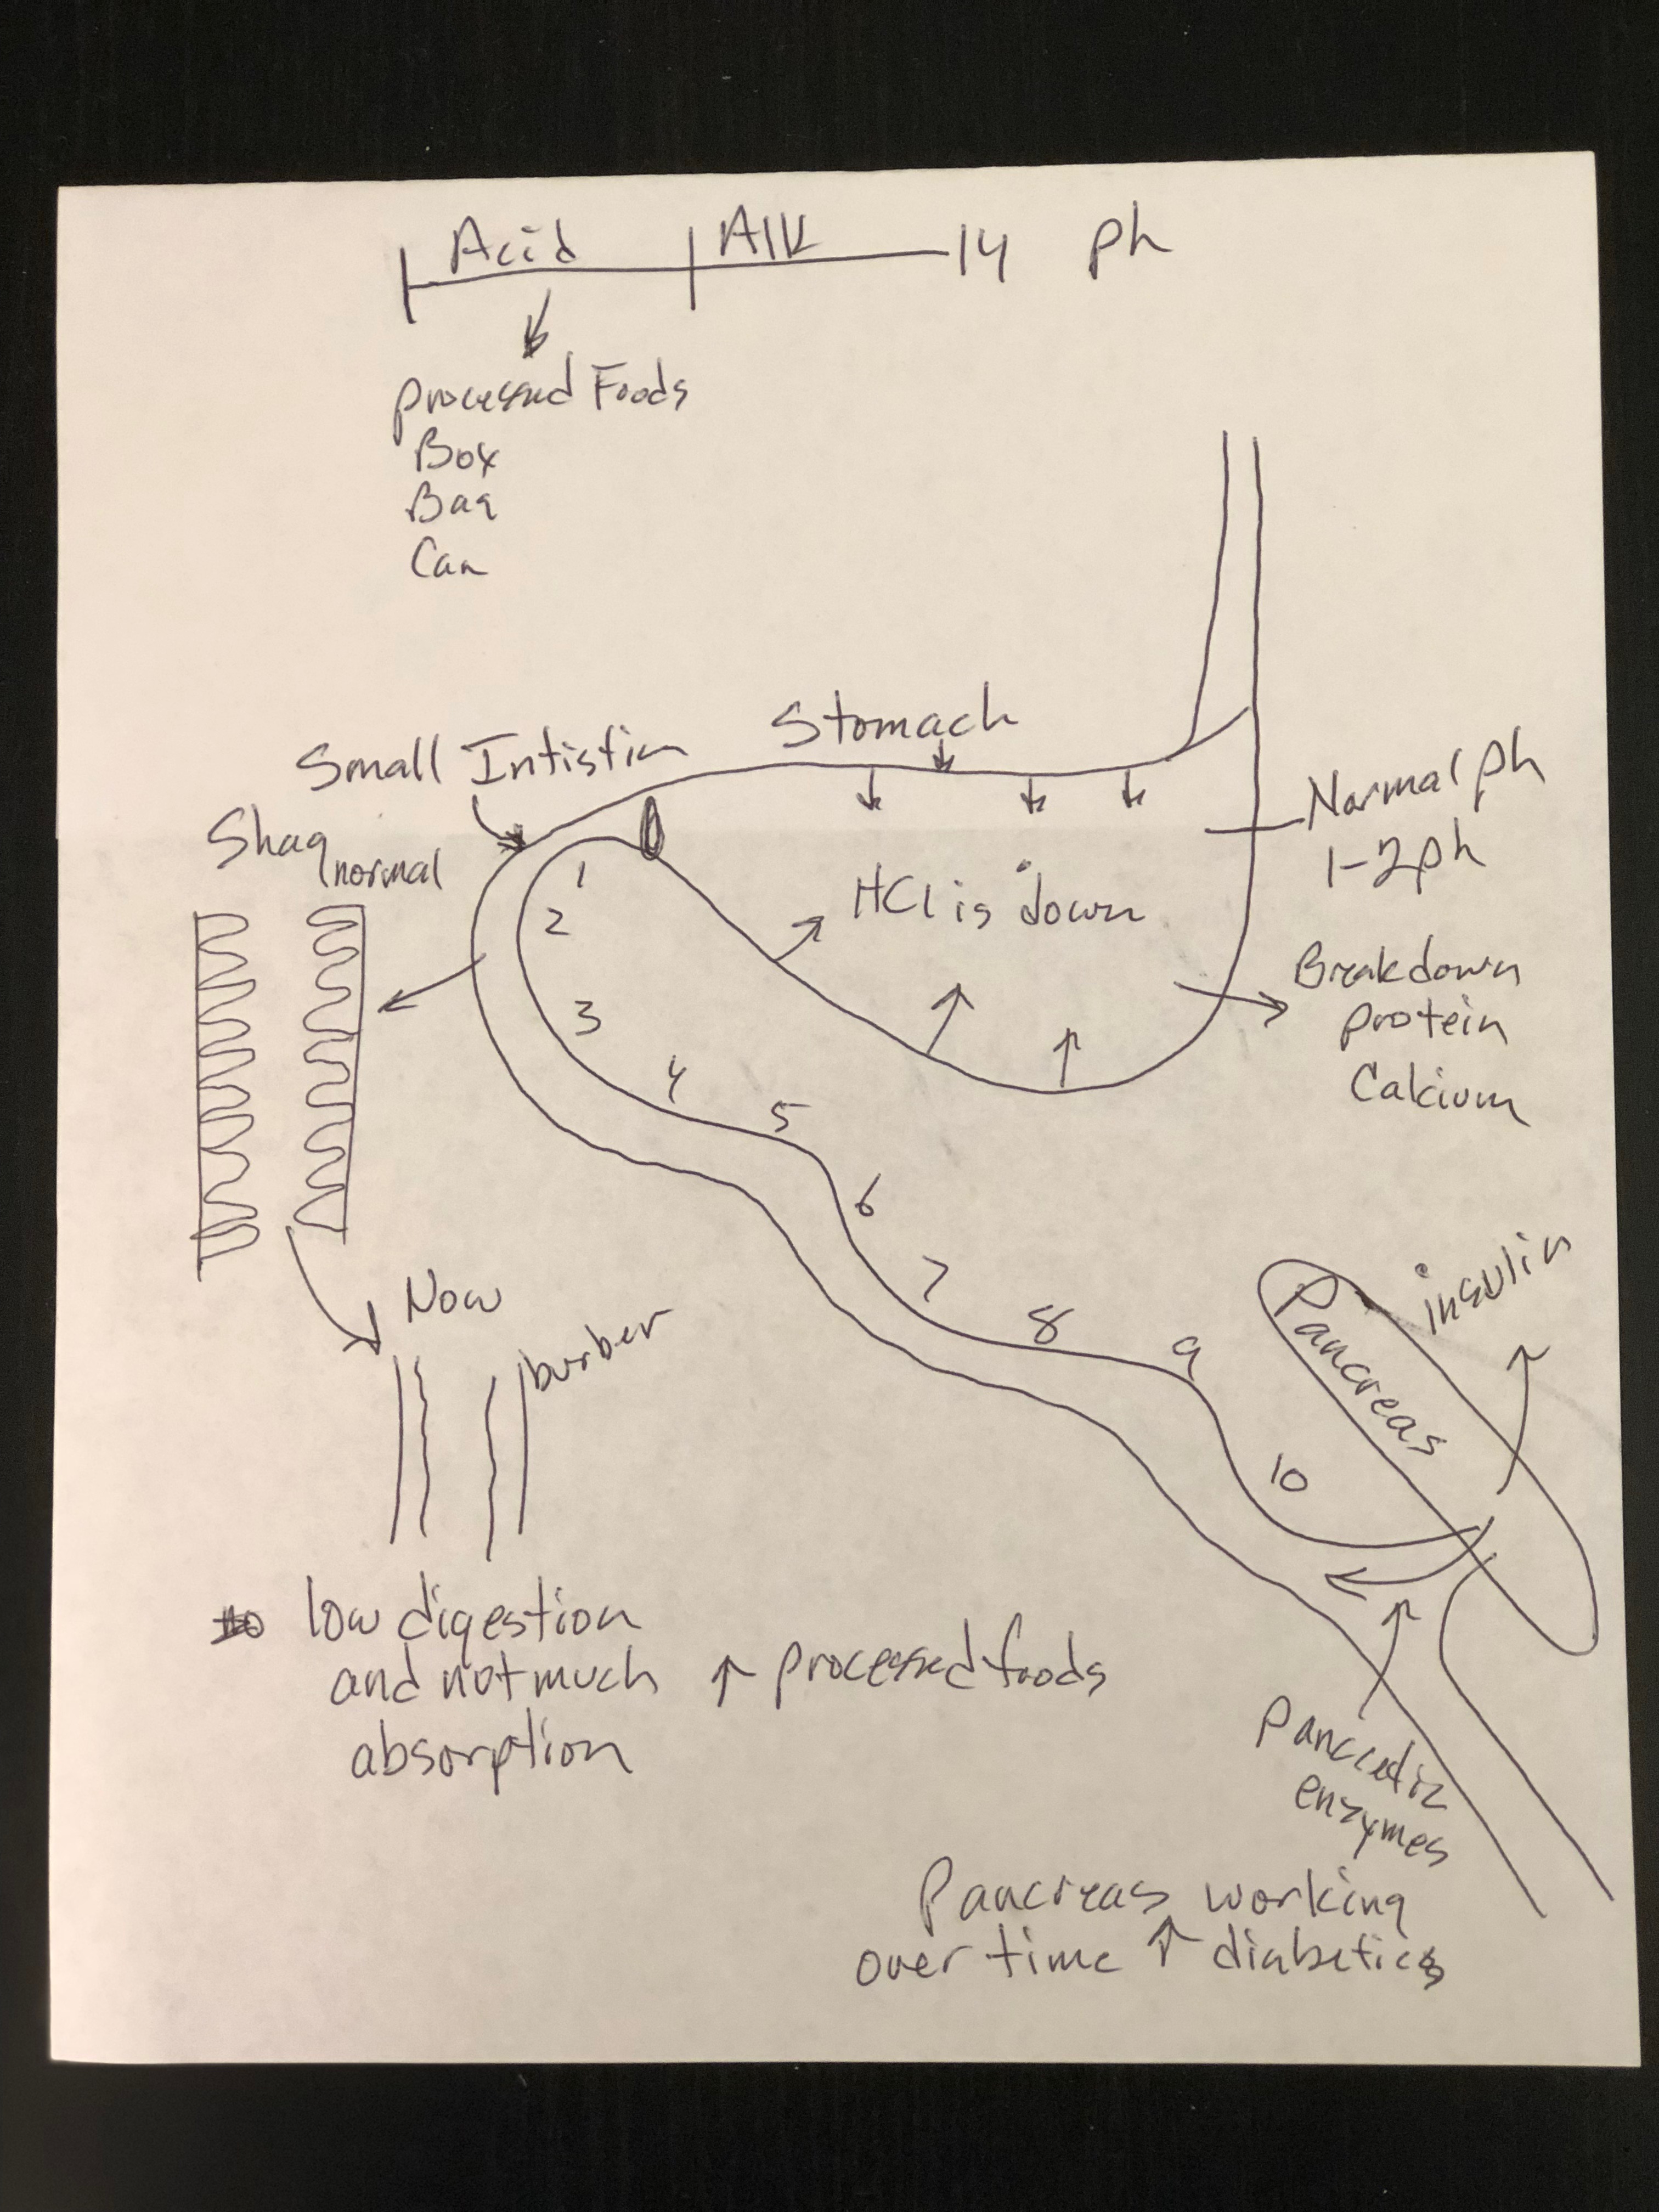 Acid Alk 14 ph
processed Foods
Box
Bag
Can
Stomach
Small Intistin
Shag
normal
Normal ph
1-2 ph
HCl is down
Breakdown
protein
Calcium
1
2
3
4
5
6
7
8
9
10
Now
burber
Pancreas
insulin
low digestion
and not much
absorption
↑ processed foods
Pancreatic
enzymes
Pancreas working
over time ↑ diabetics